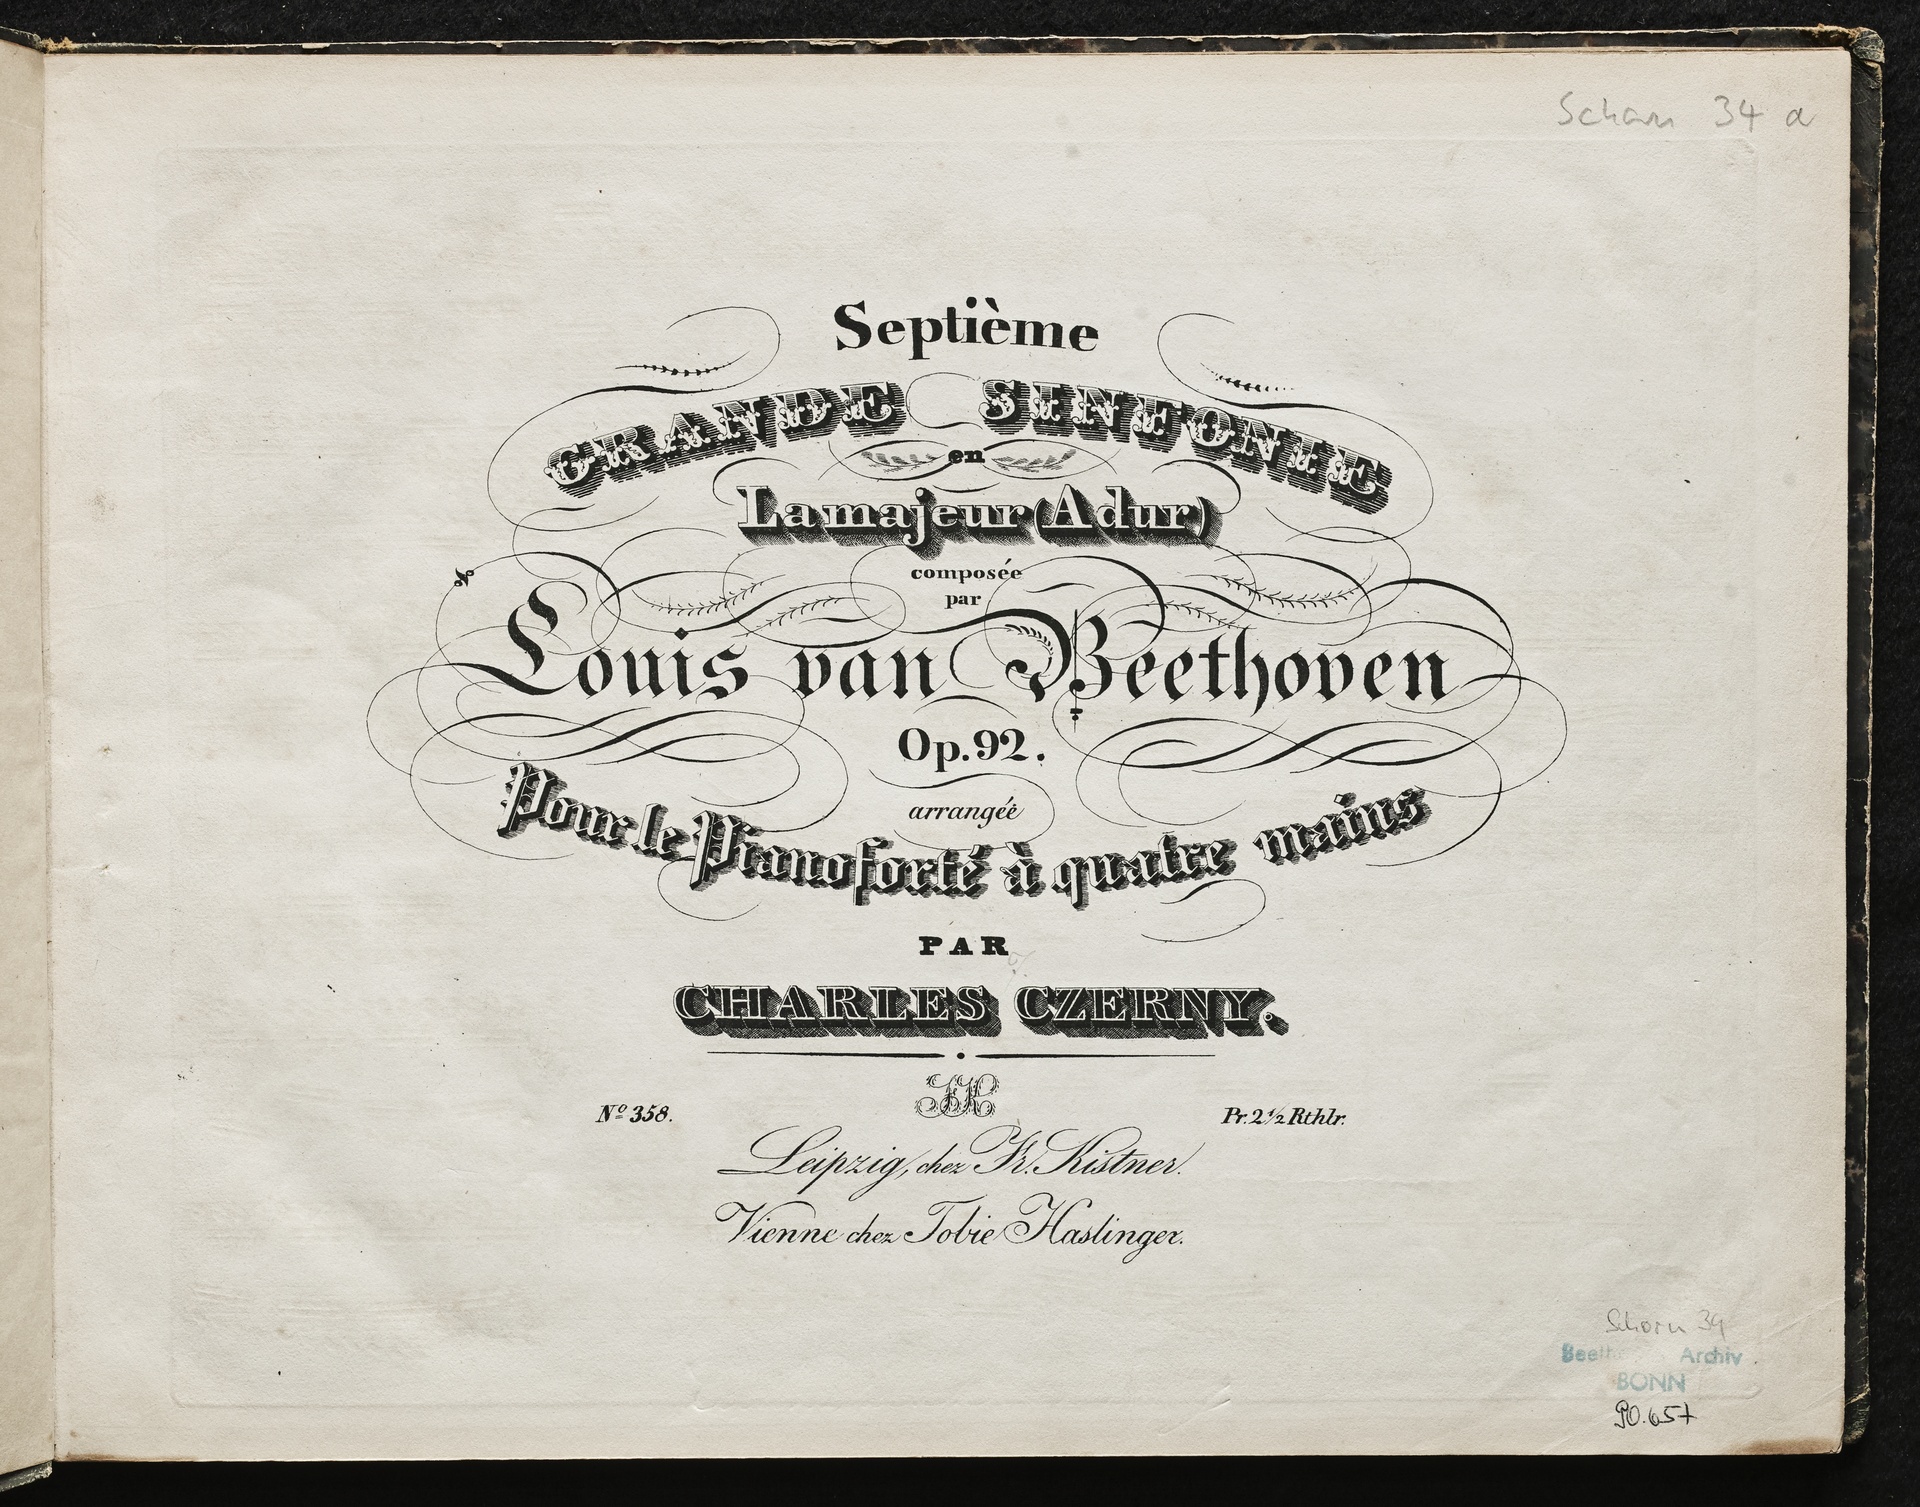 Schorn 34 a
Septième
GRANDE SINFONIE
en
La majeur (A dur)
composée
par
Louis van Beethoven
Op. 92.
arrangée
Pour le Pianoforté à quatre mains
PAR
CHARLES CZERNY.
FK
Nº 358.
Pr. 2 1/2 Rthlr.
Leipzig, chez Fr. Kistner.
Vienne chez Tobie Haslinger.
Schorn 34
Archiv
BONN